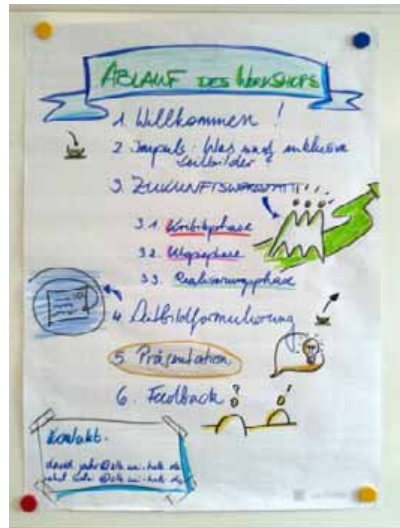 ABLAUF DES WORKSHOPS
1 Willkommen!
2. Impuls: Was sind inklusive
Leitbilder?
3. ZUKUNFTSWERKSTATT
3.1. Kritikphase
3.2. Utopiephase
3.3. Realisierungsphase
4. Leitbildformulierung
5. Präsentation
6. Feedback
Kontakt: